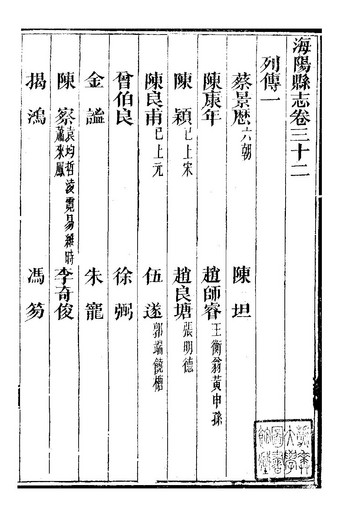 海陽縣志卷三十二
列傳一
蔡景曆六朝 陳坦
陳康年 趙師睿王衡翁黃申孫
陳穎已上宋 趙良塘張明德
陳良甫已上元 伍遂郭瑞饒檣
曾伯良 徐弼
金謐 朱寵
陳察袁均哲凌霓易雜時蕭來鳳 李奇俊
揭鴻 馮芴